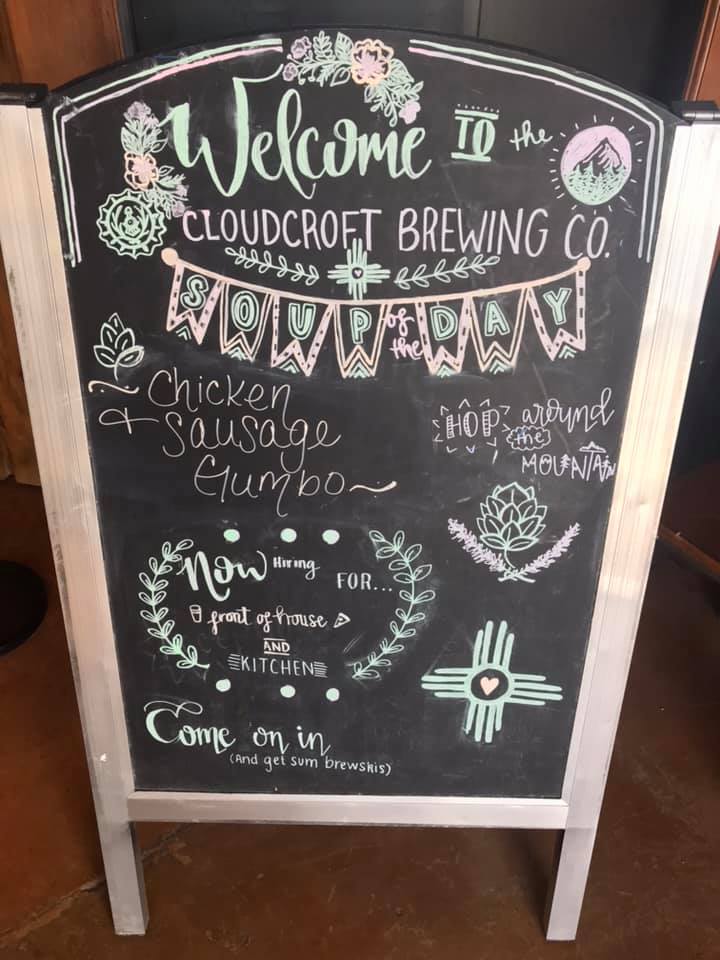 Welcome TO the
CLOUDCROFT BREWING CO.
SOUP of the DAY
~ Chicken
& Sausage
Gumbo ~
HOP around
the
MOUNTAIN
Now Hiring FOR...
front of house
AND
KITCHEN
Come on in
(And get sum brewskis)